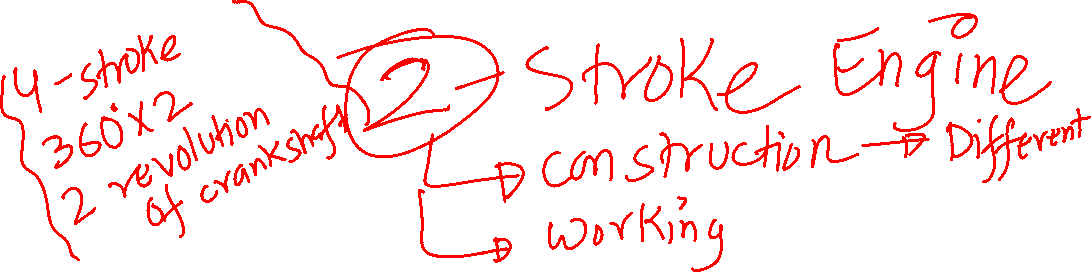 4-stroke
360°×2
2 revolution
of crankshaft
2- Stroke Engine
construction → Different
working